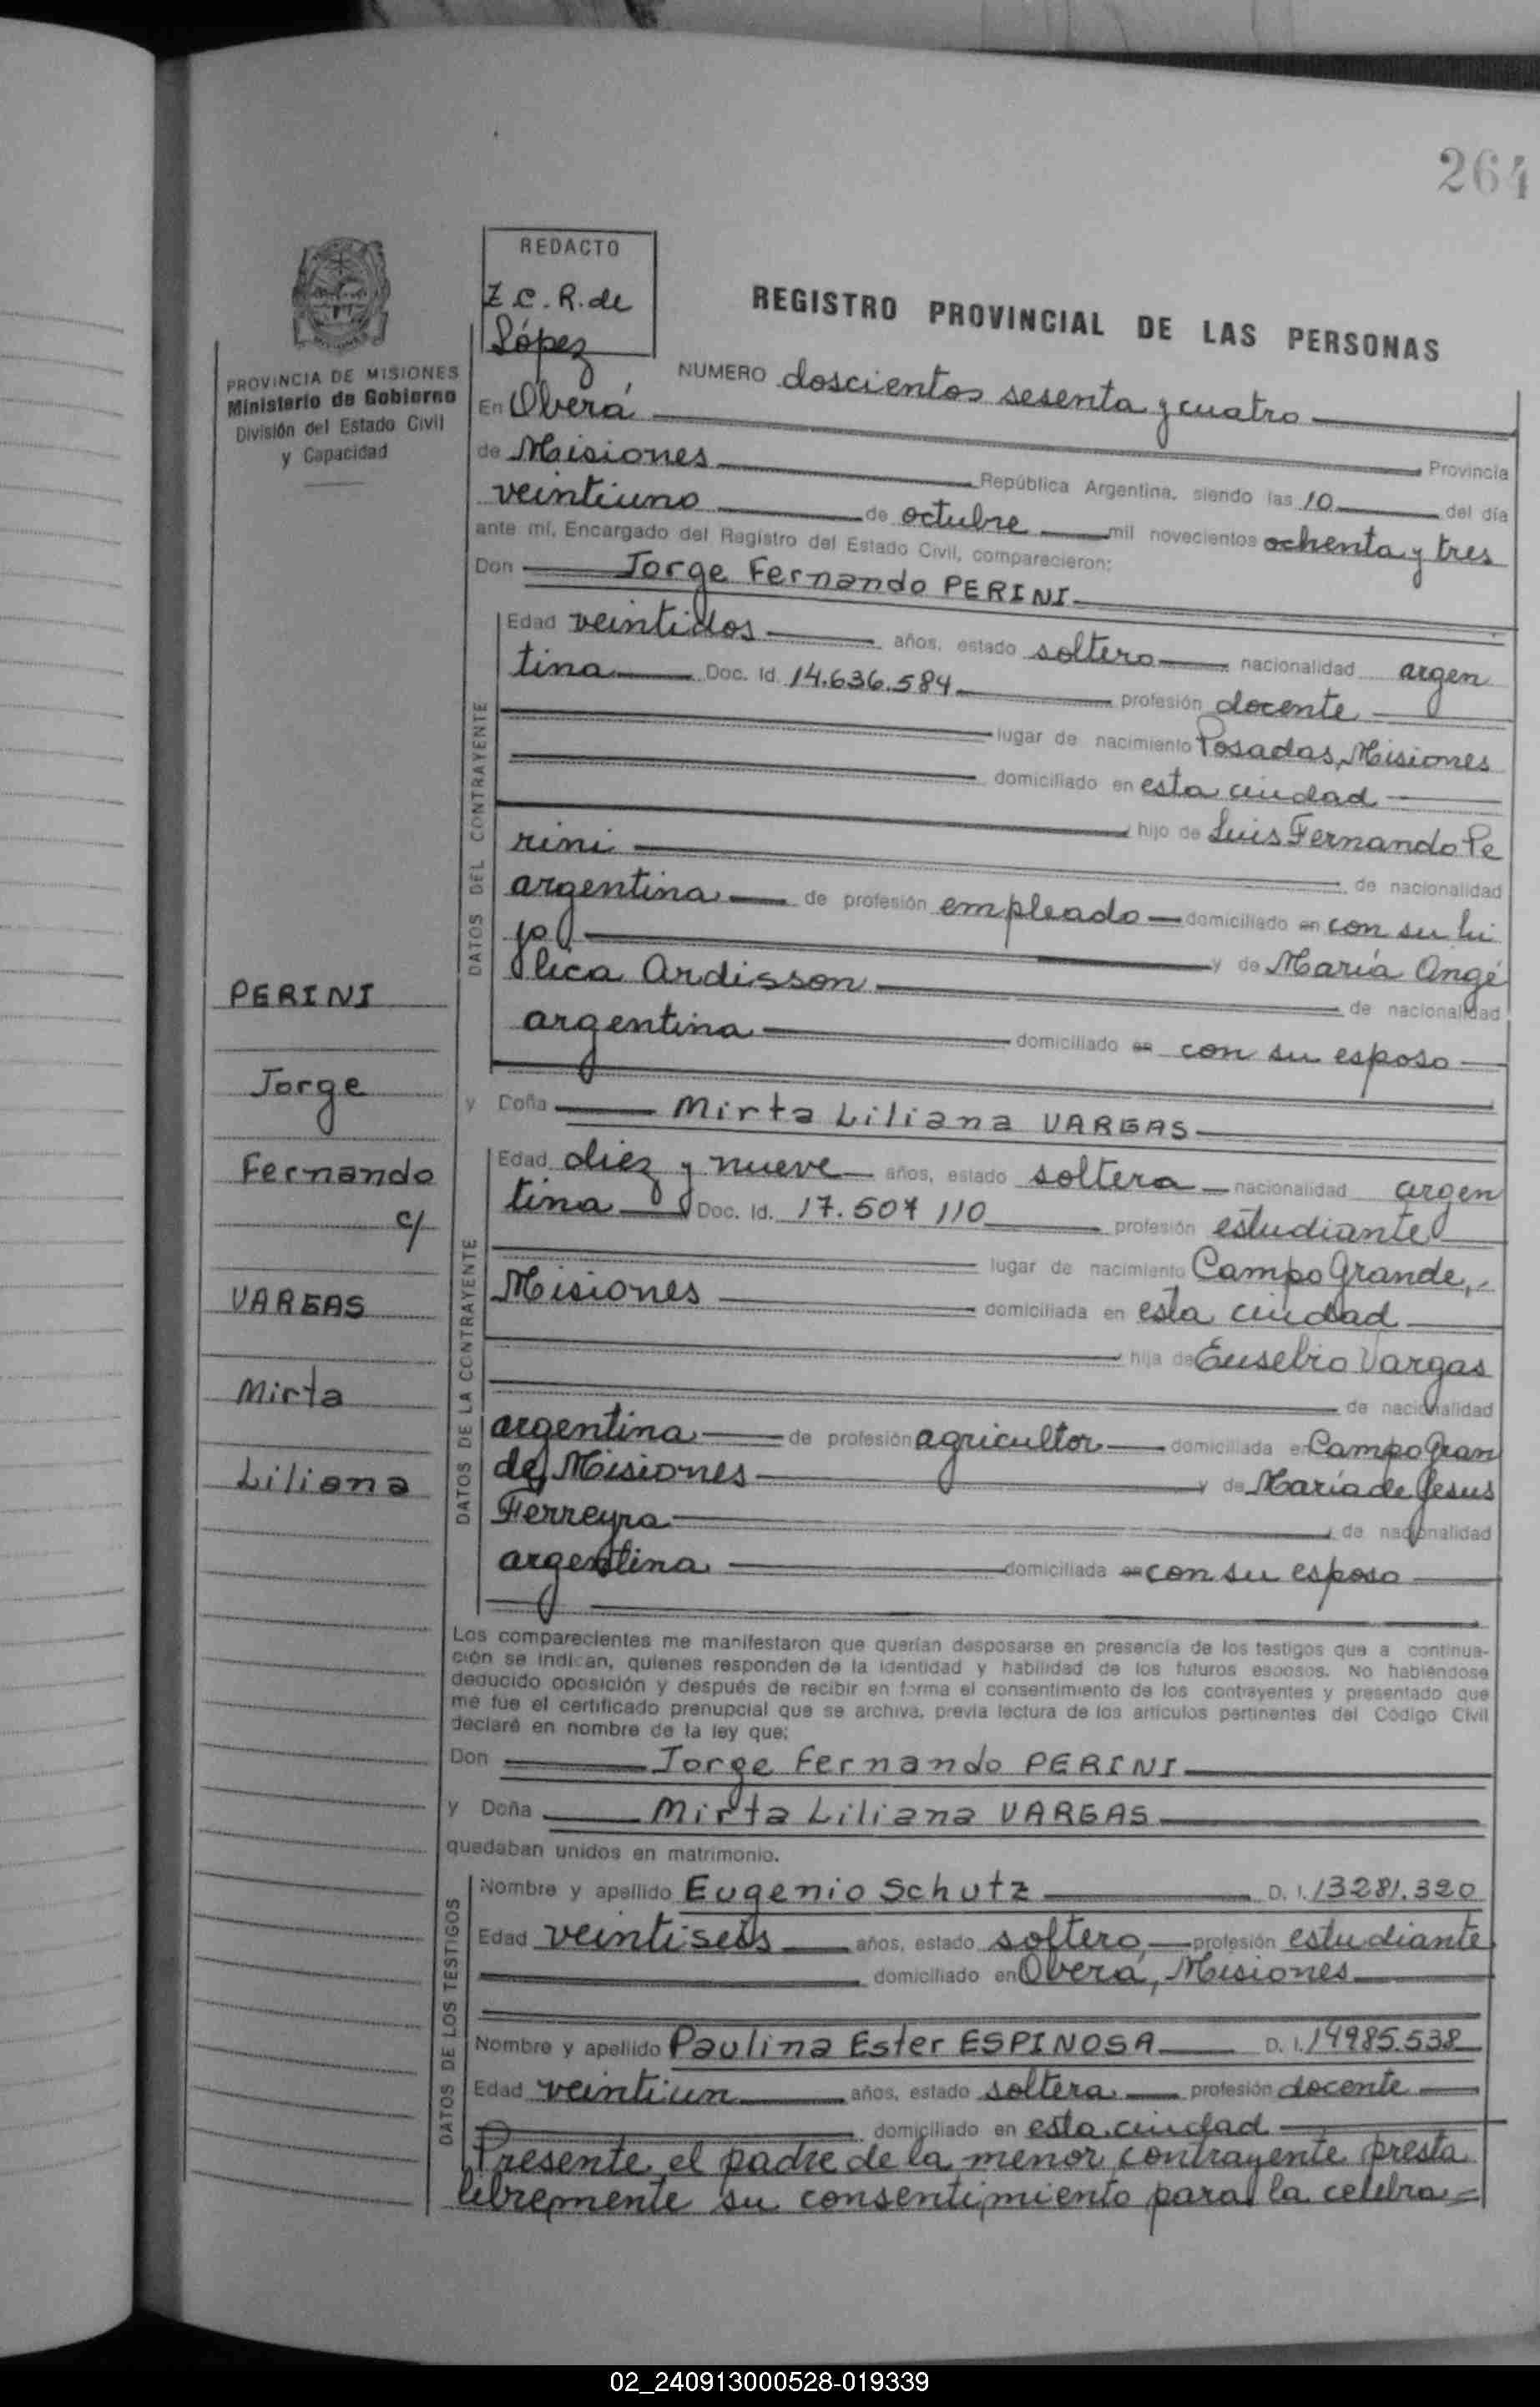 264
REDACTO
Z C. R. de
López
REGISTRO PROVINCIAL DE LAS PERSONAS
PROVINCIA DE MISIONES
Ministerio de Gobierno
División del Estado Civil
y Capacidad
NUMERO doscientos sesenta y cuatro
En Oberá Provincia
de Misiones República Argentina, siendo las 10 del día
veintiuno de octubre mil novecientos ochenta y tres
ante mí, Encargado del Registro del Estado Civil, comparecieron:
Don Jorge Fernando PERINI
DATOS DEL CONTRAYENTE
Edad veintidos años, estado soltero nacionalidad argen
tina Doc. Id. 14.636.584 profesión docente
lugar de nacimiento Posadas, Misiones
domiciliado en esta ciudad
hijo de Luis Fernando Pe
rini de nacionalidad
argentina de profesión empleado domiciliado en con su hi
jo y de María Angé
lica Ardisson de nacionalidad
argentina domiciliado en con su esposo
y Doña Mirta Liliana VARGAS
DATOS DE LA CONTRAYENTE
Edad diez y nueve años, estado soltera nacionalidad argen
tina Doc. Id. 17.507 110 profesión estudiante
lugar de nacimiento Campo Grande,
Misiones domiciliada en esta ciudad
hija de Eusebio Vargas
de nacionalidad
argentina de profesión agricultor domiciliada en Campo Gran
de, Misiones y de María de Jesus
Ferreyra de nacionalidad
argentina domiciliada en con su esposo
Los comparecientes me manifestaron que querían desposarse en presencia de los testigos que a continua-
ción se indican, quienes responden de la identidad y habilidad de los futuros esposos. No habiéndose
deducido oposición y después de recibir en forma el consentimiento de los contrayentes y presentado que
me fue el certificado prenupcial que se archiva, previa lectura de los artículos pertinentes del Código Civil
declaré en nombre de la ley que:
Don Jorge Fernando PERINI
y Doña Mirta Liliana VARGAS
quedaban unidos en matrimonio.
DATOS DE LOS TESTIGOS
Nombre y apellido Eugenio Schutz D. I. 13281.320
Edad veintiseis años, estado soltero profesión estudiante
domiciliado en Oberá, Misiones
Nombre y apellido Paulina Ester ESPINOSA D. I. 14985.538
Edad veintiun años, estado soltera profesión docente
domiciliado en esta ciudad
Presente el padre de la menor contrayente presta
libremente su consentimiento para la celebra=
PERINI
Jorge
Fernando
c/
VARGAS
Mirta
Liliana
02_240913000528-019339